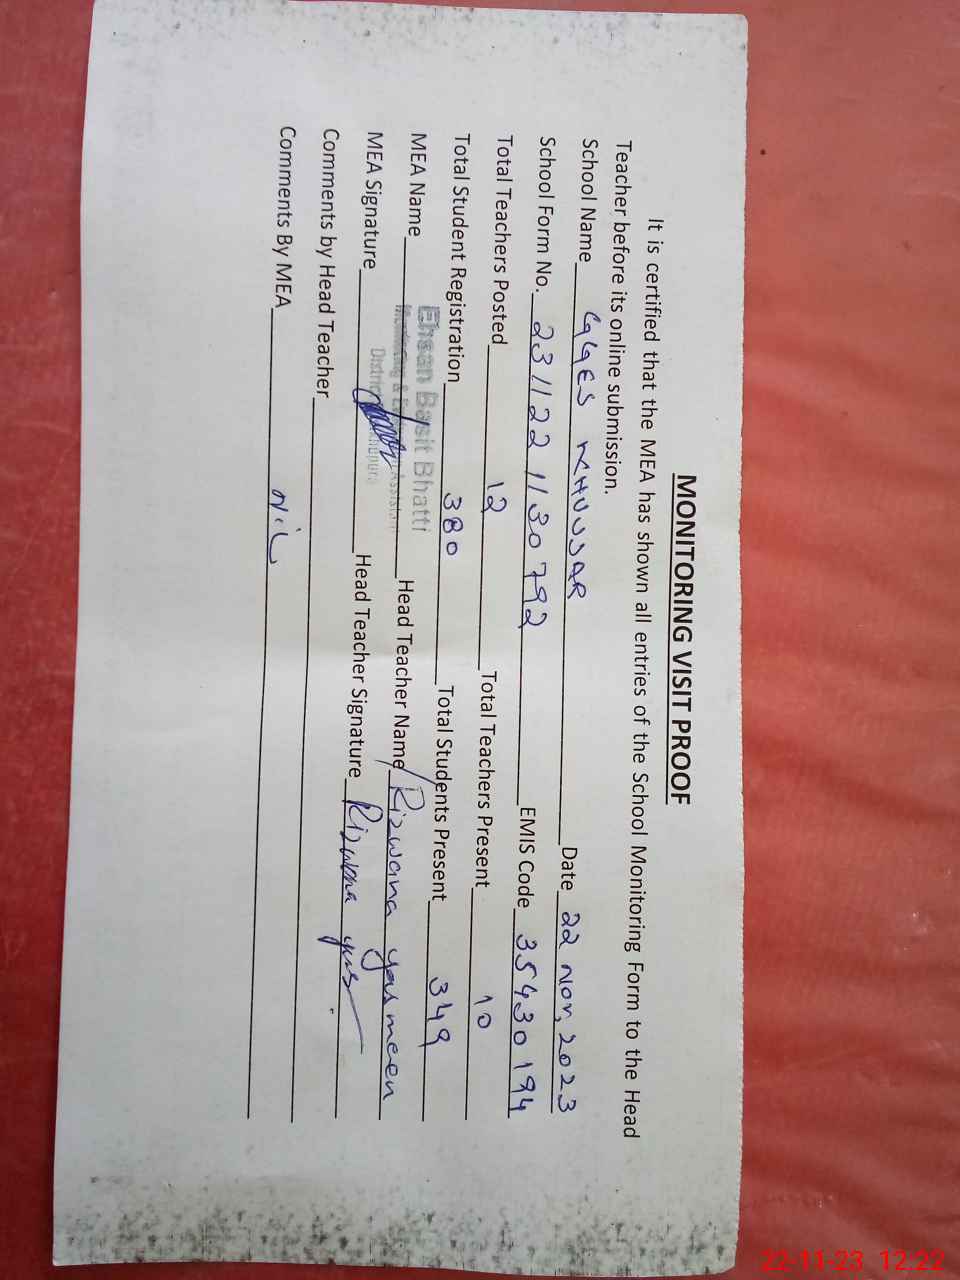 MONITORING VISIT PROOF
It is certified that the MEA has shown all entries of the School Monitoring Form to the Head
Teacher before its online submission.
School Name GGES KHUSSAR Date 22 Nov, 2023
School Form No. 231122 1130792 EMIS Code 35430194
Total Teachers Posted 12 Total Teachers Present 10
Total Student Registration 380 Total Students Present 349
Ehsan Basit Bhatti
MEA Name Head Teacher Name Rizwana yasmeen
Monitoring & Assistant
District
MEA Signature Head Teacher Signature Rizwana yas
Comments by Head Teacher
Comments By MEA Nil
22-11-23 12:22